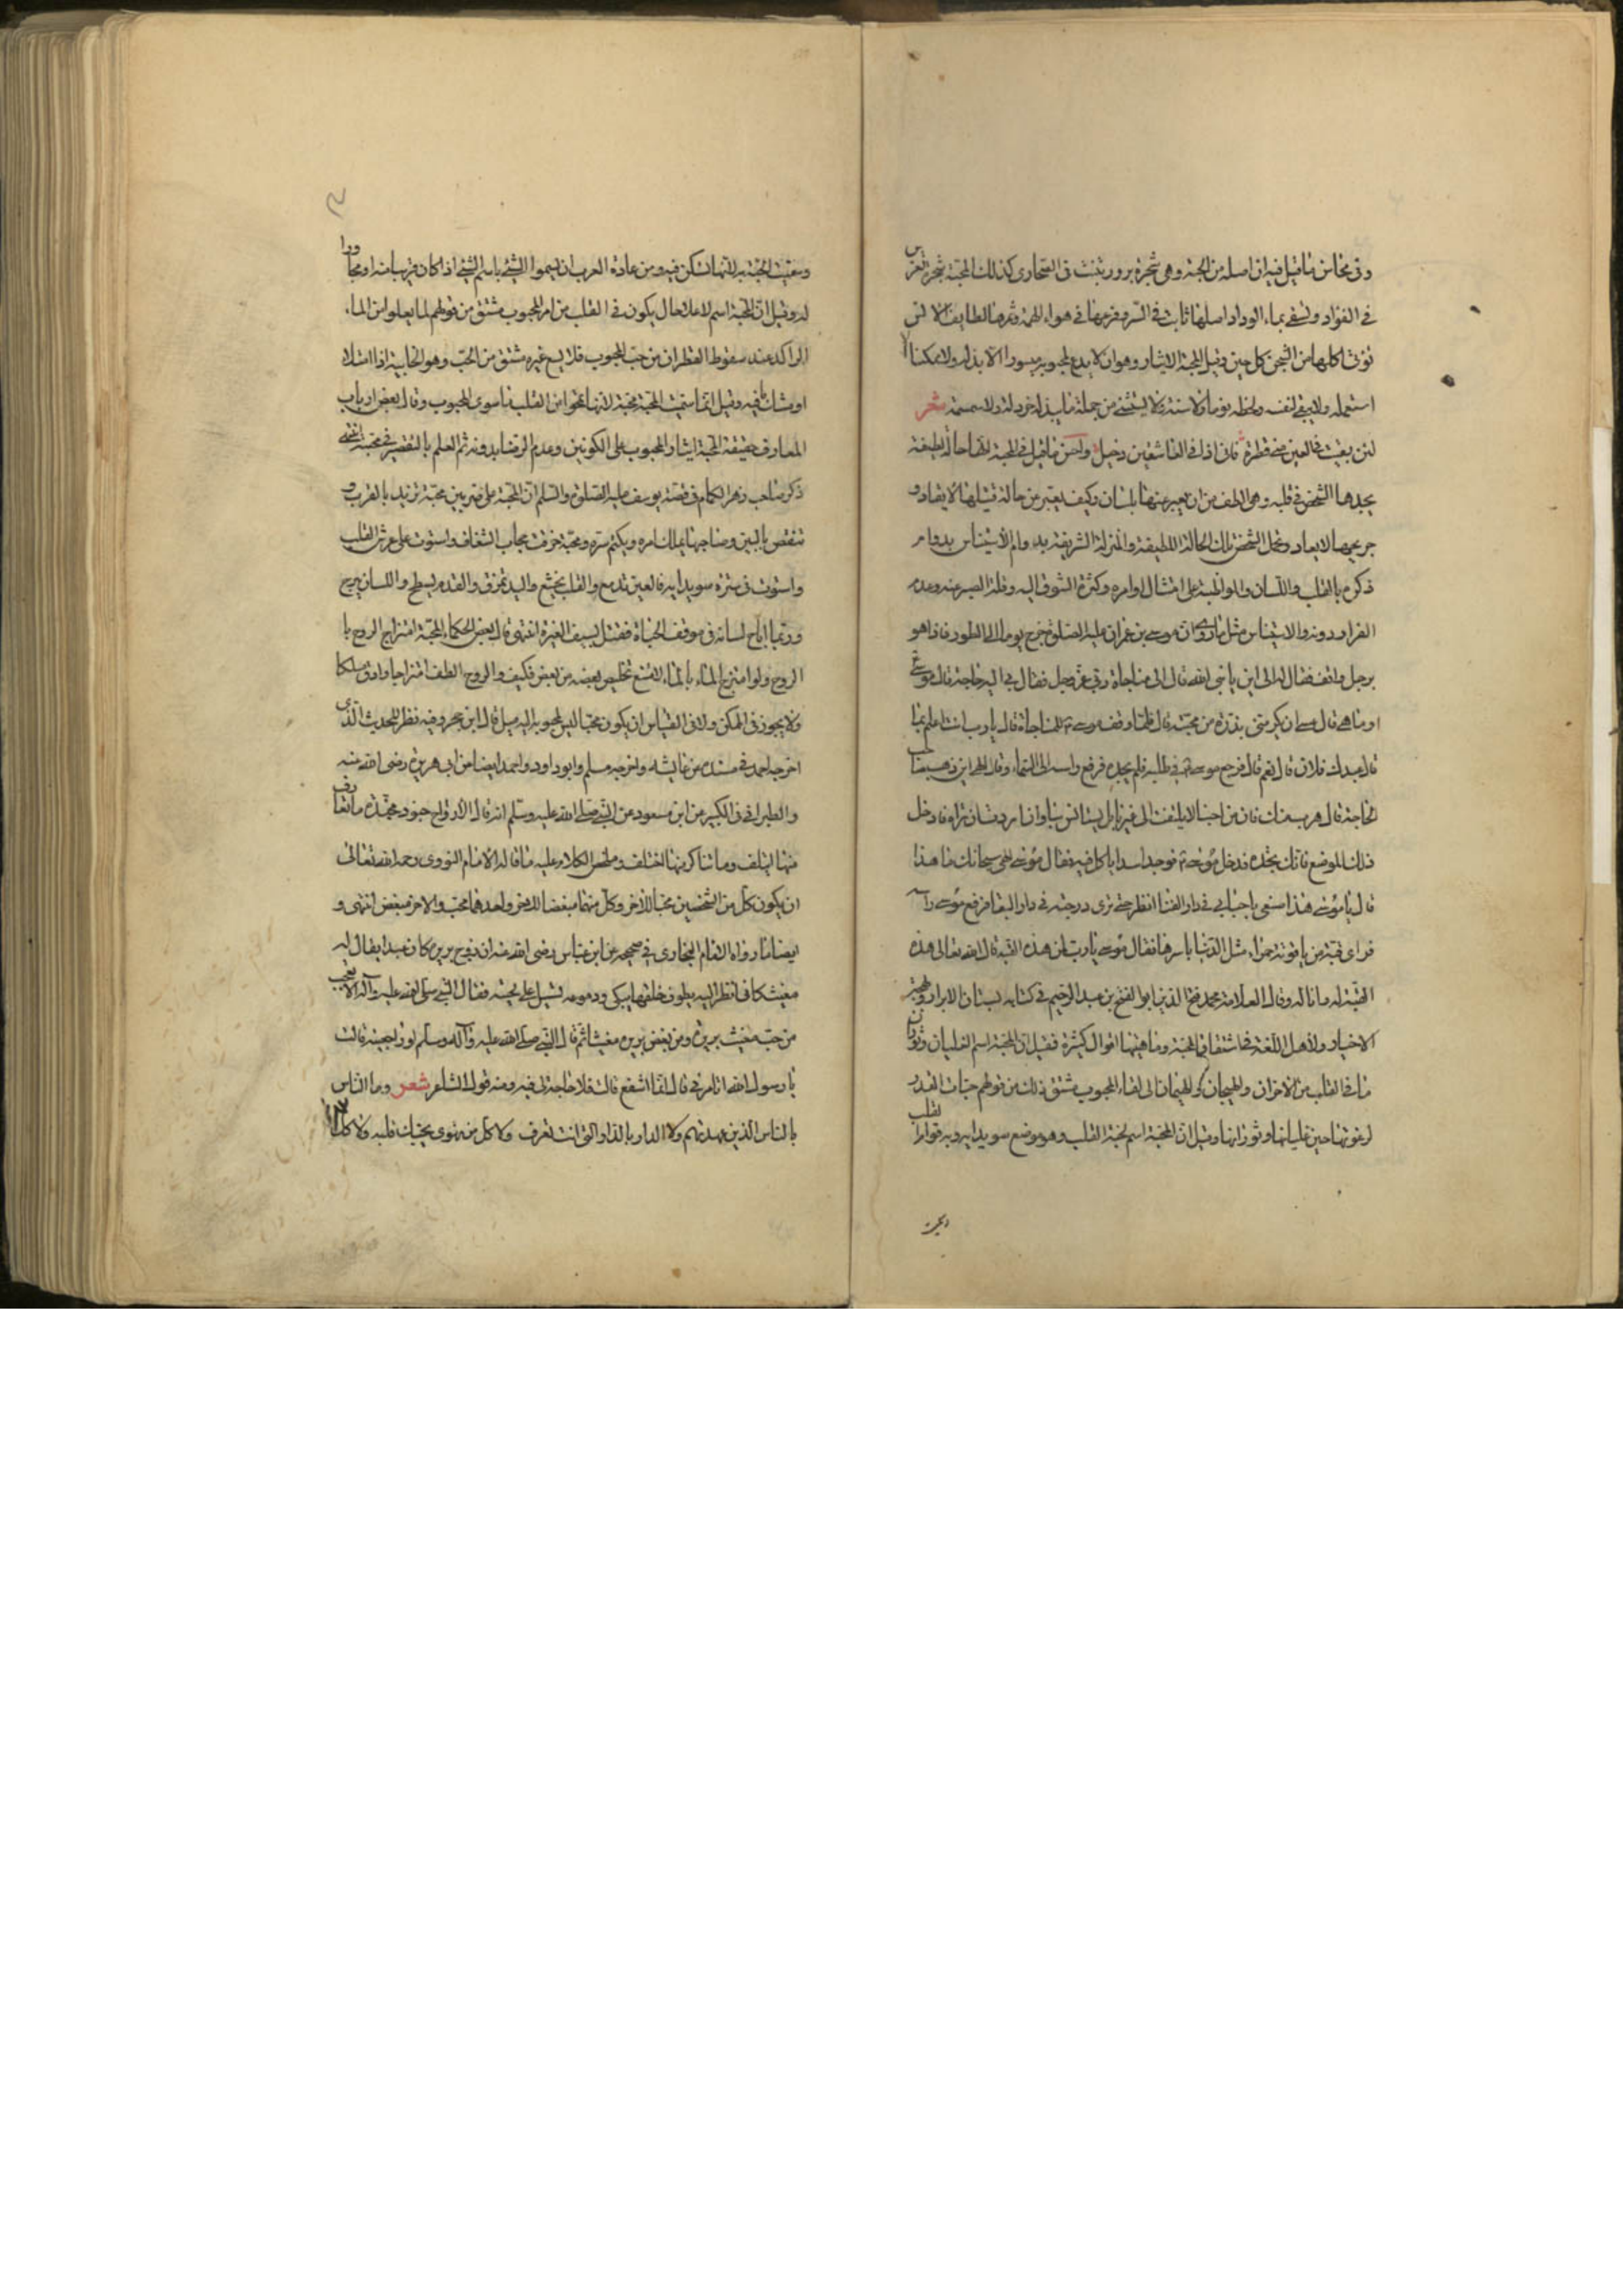 ومن محاسن ما قيل فيه ان اصله من الحبة وهى شجرة بزور تنبت فى الصحارى كذلك المحبة شجرة تغرس
فى الفؤاد وتسقى بماء الوداد اصلها ثابت فى السر وفرعها فى هواء الهمة وثمرها لطايف الانس
تؤتى اكلها من الشجن كل حين وقيل المحبة الايثار وهو ان لا يدع لمحبوبه ميسورا الا بذله ولا ممكنا الا
استعمله ولا يبقى لنفسه ولحظه يوما ولا سنة ولا يستثنى من جملة ما يبذله خردلة ولا سمسمة شعر
لئن بقيت فى العين منى قطرة فانى اذا فى العاشقين دخيل واحسن ما قيل فى المحبة انها حالة لطيفة
يجدها الشخص فى قلبه وهى الطف من ان يعبر عنها بلسان وكيف يعبر عن حالة
الابعاد وتحمل الشخص تلك الحالة اللطيفة والمنزلة الشريفة والاستيناس بدوام
ذكره بالقلب واللسان والمواظبة على امتثال اوامره وكثرة الشوق اليه وقلة الصبر عنه وعدم
القرار دونه والاستيناس مثل ما روى ان موسى بن عمران عليه الصلوة خرج يوما الى الطور فاذا هو
برجل واقف فقال له الى اين يا نبى الله قال الى مناجاة ربى عز وجل فقال لى اليه حاجة قال موسى
وما هى قال بذرة من محبته قال فلما وقف موسى للمناجاة قال يا رب انت اعلم بما
قال عبدك فلان قال نعم قال فرجع موسى فى طلبه فلم يجده فرفع راسه الى السماء وقال الهى اين ذهب صاحب
الحاجة قال هرب منك فان من احبنا لا يلتفت الى غيرنا بل يستانس بنا وان اردت ان تراه فادخل
ذلك الموضع فانك تجده فدخل موسى فوجد اسدا ياكل فيه فقال موسى الهى سبحانك ما هذا
قال يا موسى هذا صنعى باحبابى فى دار الفنا انظر حتى ترى درجته فى دار البقا فرفع موسى راسه
فراى قبة من ياقوتة حمراء مثل الدنيا باسرها فقال موسى يا رب لمن هذه القبة قال الله تعالى هذه
القبة له وقال العلامة محمد فتح الدين ابو الفتح بن عبد الرحيم فى كتابه بستان الابرار
الاخيار ولاهل اللغة فى اشتقاق المحبة وماهيتها اقوال كثيرة فقيل ان المحبة اسم لغليان وثوران
ما فى القلب من الاحزان والهيجان والهيمان الى لقاء المحبوب مشتق ذلك من قولهم حبات القدر
لرغوتها حين غليانها وثورانها وقيل ان المحبة اسم لحبة القلب وهو موضع سويدايه وبه قوام القلب
وسميت المحبة به لانها تسكن فيه ومن عادة العرب ان يسموا الشئ باسم الشئ اذا كان قريبا منه او مجاورا
له وقيل ان المحبة اسم لاعلا حال يكون فى القلب من امر المحبوب مشتق من قولهم لما يعلو من الماء
الراكد عند سقوط القطر ان من حب المحبوب فلا يسع غيره مشتق من الحب وهو الخابية اذا امتلا
وقيل انما سميت المحبة محبة لانها تمحوا من القلب ما سوى المحبوب وقال بعض ارباب
المعارف حقيقة المحبة ايثار المحبوب على الكونين وعدم الرضا بدونه ثم العلم بالتقصير فى محبته انتهى
ذكر صاحب زهر الكمام فى قصة يوسف عليه الصلوة والسلم ان المحبة على ضربين محبة تزيد بالقرب و
تنقص بالبين وصاحبها يملك امره ويكتم سره ومحبة خرقت حجاب الشغاف واستوت على عرش القلب
واستوت فى سره سويدايه فالعين تدمع والقلب يخشع واليد تمزق والقدم يسطح واللسان
وربما اباح لسانه فى موقف الحياة فقتل بسيف الغيرة انتهى قال بعض الحكماء المحبة امتزاج الروح با
الروح ولو امتزج الماء بالماء لامتنع تخليص بعضه من بعض فكيف والروح الطف امتزاجا وادق مسلكا
ولا يجوز فى الممكن ولا فى القياس ان يكون محبا ليس لمحبوبه اليه ميل قال ابن حجر وفيه نظر للحديث الذى
اخرجه احمد فى مسنده عن عايشه واخرجه مسلم وابو داود واحمد ايضا من ابى هريرة رضى الله عنه
والطبرانى فى الكبير من ابن مسعود عن النبى صلى الله عليه وسلم انه قال الارواح جنود مجندة ما تعارف
منها ائتلف وما تناكر منها اختلف وملخص الكلام عليه ما قاله الامام النووى رحمه الله تعالى
ان يكون كل من الشخصين محبا للاخر وكل منهما مبغضا للاخر واحدهما محب والاخر مبغض انتهى و
ايضا ما رواه الامام البخارى فى صحيحه عن ابن عباس رضى الله عنه ان زوج بريرة كان عبدا يقال له
مغيث كانى انظر اليه يطوف خلفها يبكى ودموعه تسيل على لحيته فقال النبى صلى الله عليه وآله الا تعجب
من حب مغيث بريرة ومن بغض بريرة مغيثا ثم قال النبى صلى الله عليه وآله وسلم لو راجعتيه قالت
يا رسول الله اتامرنى قال انما اشفع قالت فلا حاجة لى فيه ومنه قول الشاعر شعر وما الناس
بالناس الذين عهدتهم ولا الدار بالدار التى انت تعرف ولا كل من تهوى يحبك قلبه ولا كل